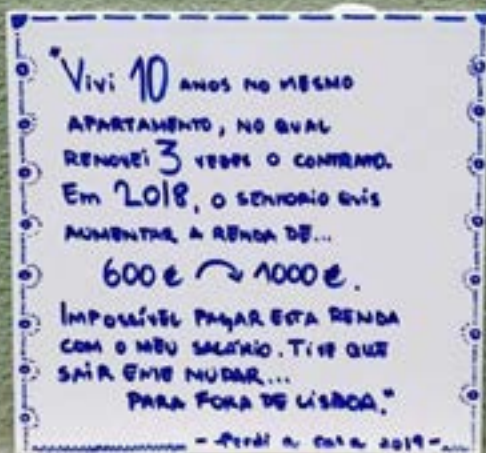 "Vivi 10 ANOS NO MESMO
APARTAMENTO, NO QUAL
RENOVEI 3 VEZES O CONTRATO.
Em 2018, O SENHORIO QUIS
AUMENTAR A RENDA DE...
600€ 1000€.
IMPOSSÍVEL PAGAR ESTA RENDA
COM O MEU SALÁRIO. TIVE QUE
SAIR E ME MUDAR...
PARA FORA DE LISBOA."
- Perdi a casa 2019 -